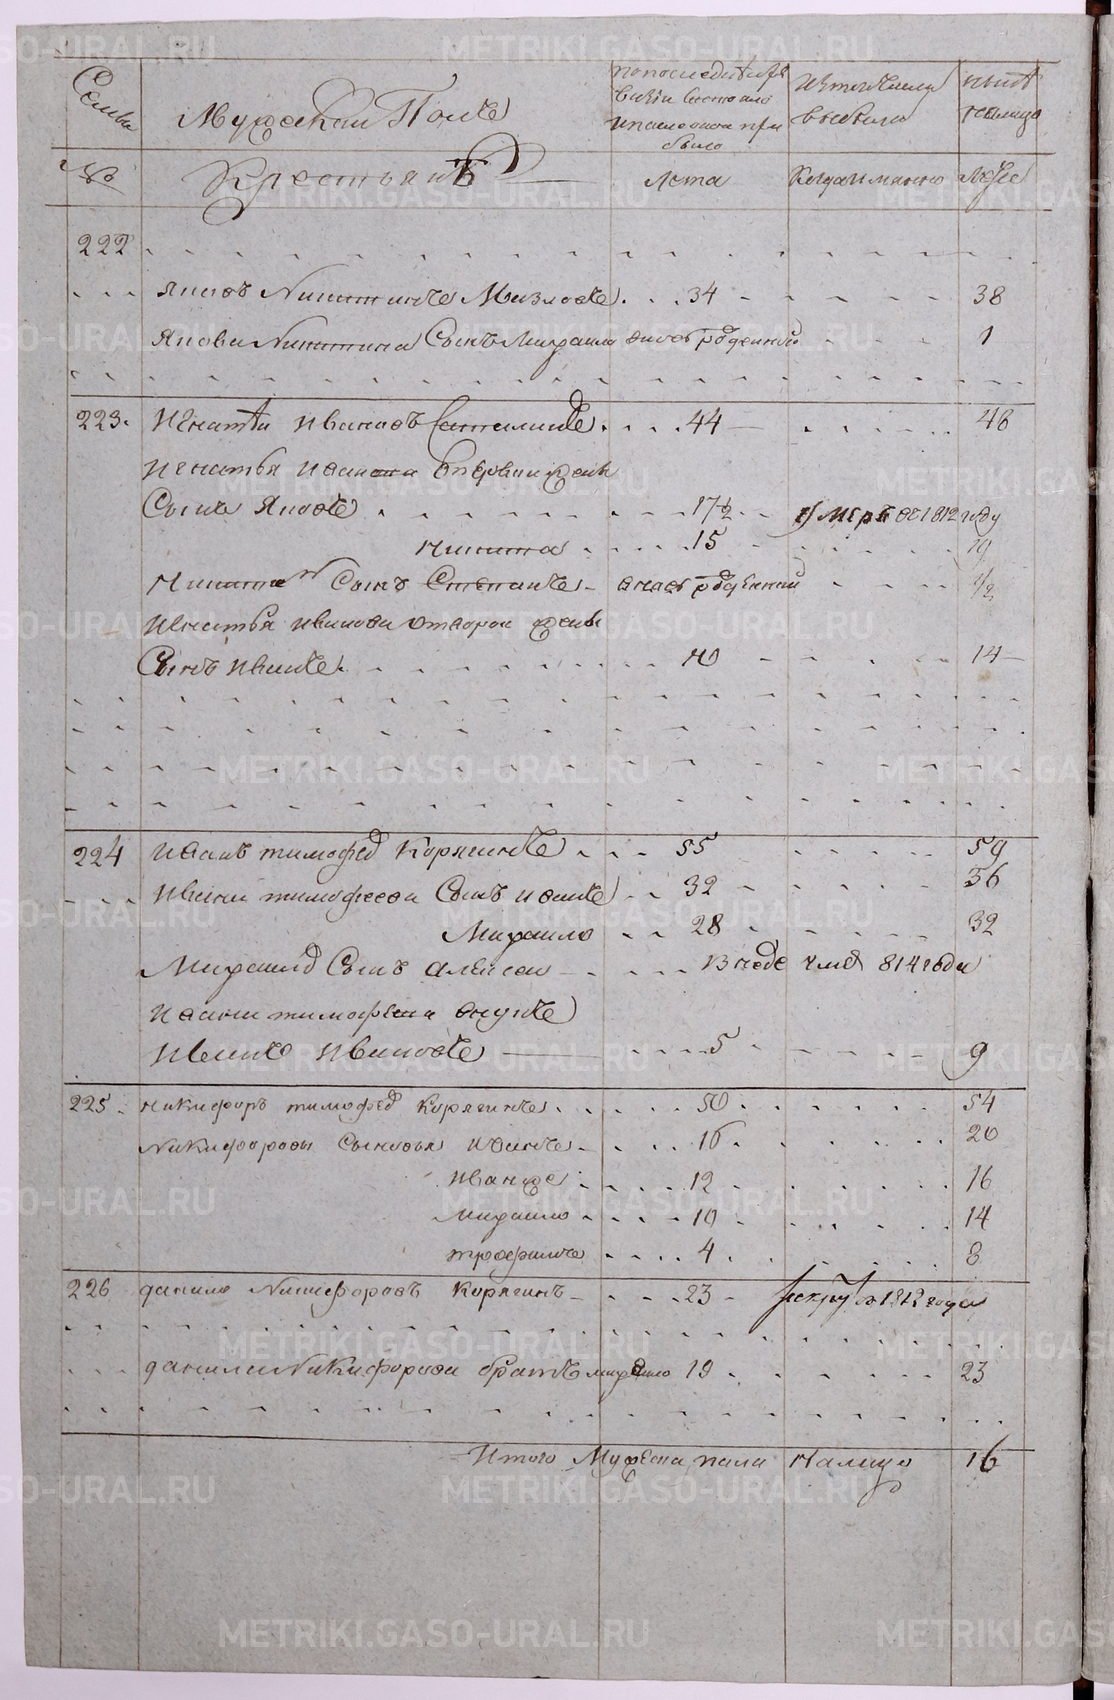 Семьи
Мужеской Полъ
по последней
визии состояло
и после оной при
было
Изтого числа
выбыло
ныне
налицо
№
Крестьянъ
Лета
Когда именно
Лета
222
Яковъ Никитинъ 34 38
Якова Никитина Сынъ Михаило вновь рожденной 1
223. Игнатей Ивановъ 44 48
Игнатья Иванова от первой жены
Сынъ Яковъ 17½ умеръ в 1812 году
Никита 15 19
Никиты Сынъ Степанъ вновь рожденный ½
Игнатья Иванова от второй жены
Сынъ Иванъ 10 14
224 Иванъ тимофеев Корягинъ 55 59
Ивана тимофеева Сынъ Иванъ 32 36
Михаило 28 32
Михаила Сынъ Алексей 814 года
Ивана тимофеева внукъ
Иванъ Ивановъ 5 9
225. никифоръ тимофеев Корягинъ 50 54
Никифоровы Сыновья Иванъ 16 20
12 16
Михаило 10 14
трофимъ 4 8
226 данило Никифоровъ Корягинъ 23 рекрут в 1812 года
данилы Никифорова братъ михаило 19 23
Итого Мужеска пола налицо 16
METRIKI.GASO-URAL.RU